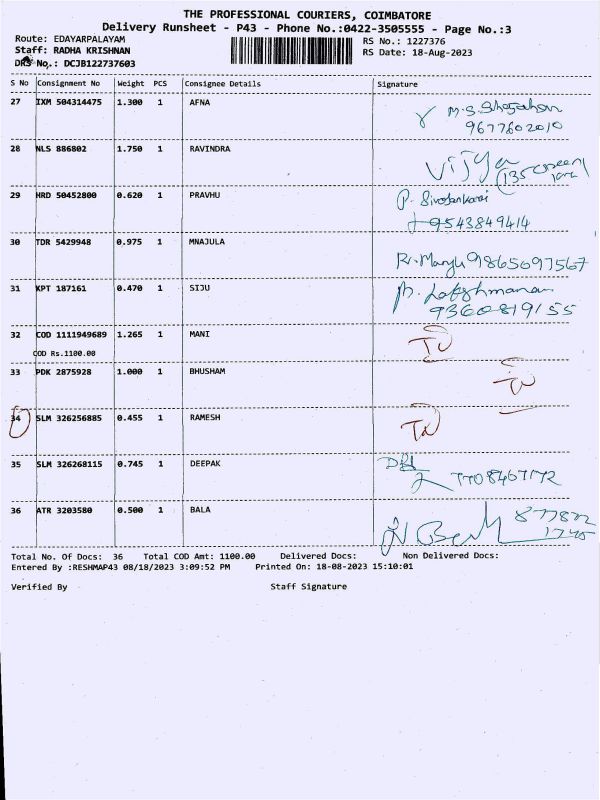 THE PROFESSIONAL COURIERS, COIMBATORE
Delivery Runsheet - P43 - Phone No.:0422-3505555 - Page No.:3
Route: EDAYARPALAYAM RS No.: 1227376
Staff: RADHA KRISHNAN RS Date: 18-Aug-2023
DRS No.: DCJB122737603
S No Consignment No Weight PCS Consignee Details Signature
27 IXM 504314475 1.300 1 AFNA
9677602010
28 NLS 886802 1.750 1 RAVINDRA
Vijya
29 HRD 50452800 0.620 1 PRAVHU P.
9543849414
30 TDR 5429948 0.975 1 MNAJULA
R. Manju 9865697567
31 KPT 187161 0.470 1 SIJU
9360819155
32 COD 1111949689 1.265 1 MANI
COD Rs.1100.00
33 PDK 2875928 1.000 1 BHUSHAM
34 SLM 326256885 0.455 1 RAMESH
35 SLM 326268115 0.745 1 DEEPAK
7708467172
36 ATR 3203580 0.500 1 BALA
Total No. Of Docs: 36 Total COD Amt: 1100.00 Delivered Docs: Non Delivered Docs:
Entered By :RESHMAP43 08/18/2023 3:09:52 PM Printed On: 18-08-2023 15:10:01
Verified By Staff Signature